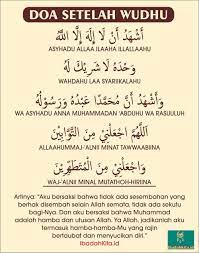 DOA SETELAH WUDHU
أَشْهَدُ أَنْ لَا إِلَهَ إِلَّا اللَّهُ
ASYHADU ALLAA ILAAHA ILLALLAAHU
وَحْدَهُ لَا شَرِيكَ لَهُ
WAHDAHU LAA SYARIIKALAHU
وَأَشْهَدُ أَنَّ مُحَمَّدًا عَبْدُهُ وَرَسُولُهُ
WA ASYHADU ANNA MUHAMMADAN 'ABDUHU WA RASUULUH
اَللَّهُمَّ اجْعَلْنِيْ مِنَ التَّوَّابِيْنَ
ALLAAHUMMAJ-'ALNII MINAT TAWWAABIINA
وَاجْعَلْنِيْ مِنَ الْمُتَطَهِّرِيْنَ
WAJ-'ALNII MINAL MUTATHOH-HIRIINA
Artinya: "Aku bersaksi bahwa tidak ada sesembahan yang
berhak disembah selain Allah semata, tidak ada sekutu
bagi-Nya. Dan aku bersaksi bahwa Muhammad
adalah hamba dan utusan Allah. Ya Allah, jadikanlah aku
termasuk hamba-hamba-Mu yang rajin
bertaubat dan menyucikan diri."
IbadahKita.id